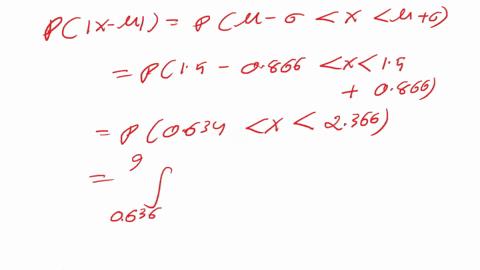 P(|x-μ|) = P(μ-σ < x < μ+σ)
= P(1.5 - 0.866 < x < 1.5 + 0.866)
= P(0.634 < x < 2.366)
= ∫ 9 0.636